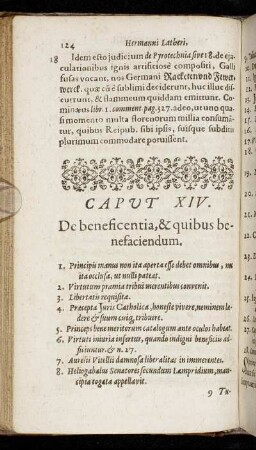 124 Hermanni Latheri.
18 Idem esto judicium de Pyrotechnia sive 18. de eja-
culationibus ignis artificiosè compositi, Galli
fusas vocant, nos Germani Racketen vnd Fewr-
werck. quæ cũ è sublimi deciderunt, huc illuc di-
scurrunt, & flammeum quiddam emittunt. Co-
minæus libr. 1. comment. pag. 327. adeo, ut uno qua-
si momento multa florenorum millia consumã-
tur, quibus Reipub. sibi ipsis, suisque subditis
plurimum commodare potuissent.
CAPUT XIV.
De beneficentia, & quibus be-
nefaciendum.
1. Principis manus non ita aperta esse debet omnibus, ni
ita occlusa, ut nulli pateat.
2. Virtutum præmia tribui merentibus convenit.
3. Libertatis requisita.
4. Præcepta Juris Catholica, honestè vivere, neminem læ-
dere & suum cuiq; tribuere.
5. Princeps bene meritorum catalogum ante oculos habeat.
6. Virtuti iniuria infertur, quando indigni beneficiis af-
ficiuntur, & n. 27.
7. Aurelii Vitellii damnosa liberalitas in immerentes.
8. Heliogabalus Senatores secundum Lampridium, man-
cipia togata appellavit.
9 Tu-